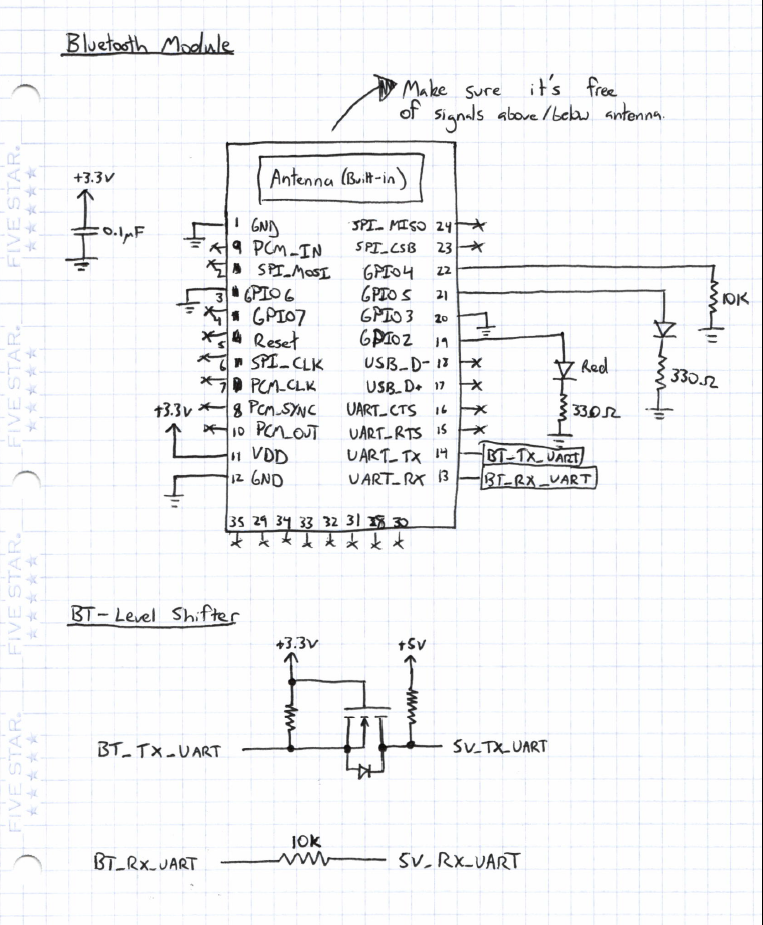 Bluetooth Module
Make sure it's free
of signals above/below antenna.
+3.3V
0.1µF
Antenna (Built-in)
1 GND
9 PCM_IN
2 SPI_MOSI
3 GPIO6
4 GPIO7
5 Reset
6 SPI_CLK
7 PCM_CLK
+3.3V
8 PCM_SYNC
10 PCM_OUT
11 VDD
12 GND
SPI_MISO 24
SPI_CSB 23
GPIO4 22
GPIO5 21
GPIO3 20
GPIO2 19
USB_D- 18
USB_D+ 17
UART_CTS 16
UART_RTS 15
UART_TX 14 BT_TX_UART
UART_RX 13 BT_RX_UART
10K
330Ω
Red
330Ω
35 29 34 33 32 31 28 30
BT-Level Shifter
+3.3V +5V
BT_TX_UART 5V_TX_UART
10K
BT_RX_UART 5V_RX_UART
FIVE STAR.
FIVE STAR.
FIVE STAR.